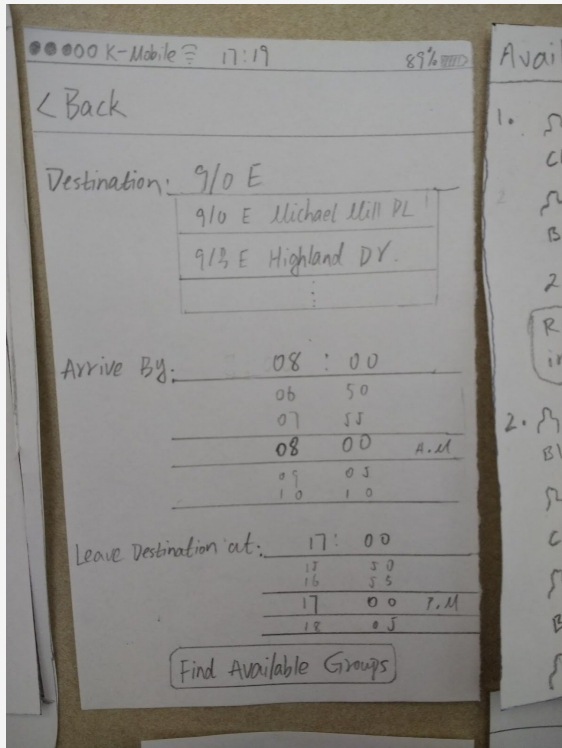 K-Mobile 17:19 89%
< Back
Destination: 910 E
910 E Michael Mill PL
913 E Highland DY.
Arrive By: 08 : 00
06 50
07 55
08 00 A.M
09 05
10 10
Leave Destination at: 17: 00
15 50
16 55
17 00 P.M
18 05
Find Available Groups
Avail
1.
Cl
2
B
2
R
in
2.
Bl
C
B